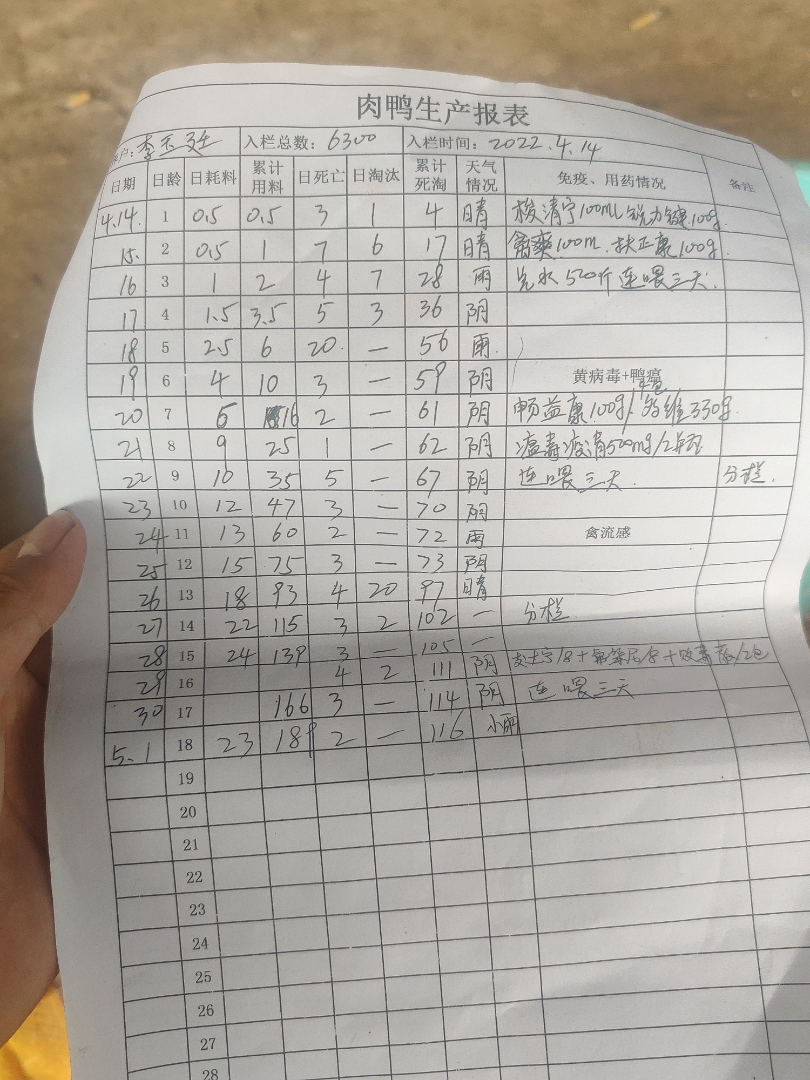 肉鸭生产报表
户: 李玉 入栏总数: 6300 入栏时间: 2022.4.14
日期 日龄 日耗料 累计用料 日死亡 日淘汰 累计死淘 天气情况 免疫、用药情况 备注
4.14. 1 0.5 0.5 3 1 4 晴 100mL 100g
15. 2 0.5 1 7 6 17 晴 禽爽100m. 扶正康100g.
16 3 1 2 4 7 28 雨 兑水500斤 连喂三天.
17 4 1.5 3.5 5 3 36 阴
18 5 2.5 6 20. — 56 雨.
19 6 4 10 3 — 59 阴 黄病毒+鸭瘟
20 7 6 16 2 — 61 阴 畅益康100g/ 多维330g.
21 8 9 25 1 — 62 阴 瘟毒疫清500mg/
22 9 10 35 5 — 67 阴 连喂三天. 分栏.
23 10 12 47 3 — 70 阴
24 11 13 60 2 — 72 雨 禽流感
25 12 15 75 3 — 73 阴
26 13 18 93 4 20 97 晴
27 14 22 115 3 2 102 — 分栏
28 15 24 139 3 — 105 —
29 16 4 2 111 阴
30 17 166 3 — 114 阴 连喂三天
5.1 18 23 189 2 — 116 小雨
19
20
21
22
23
24
25
26
27
28